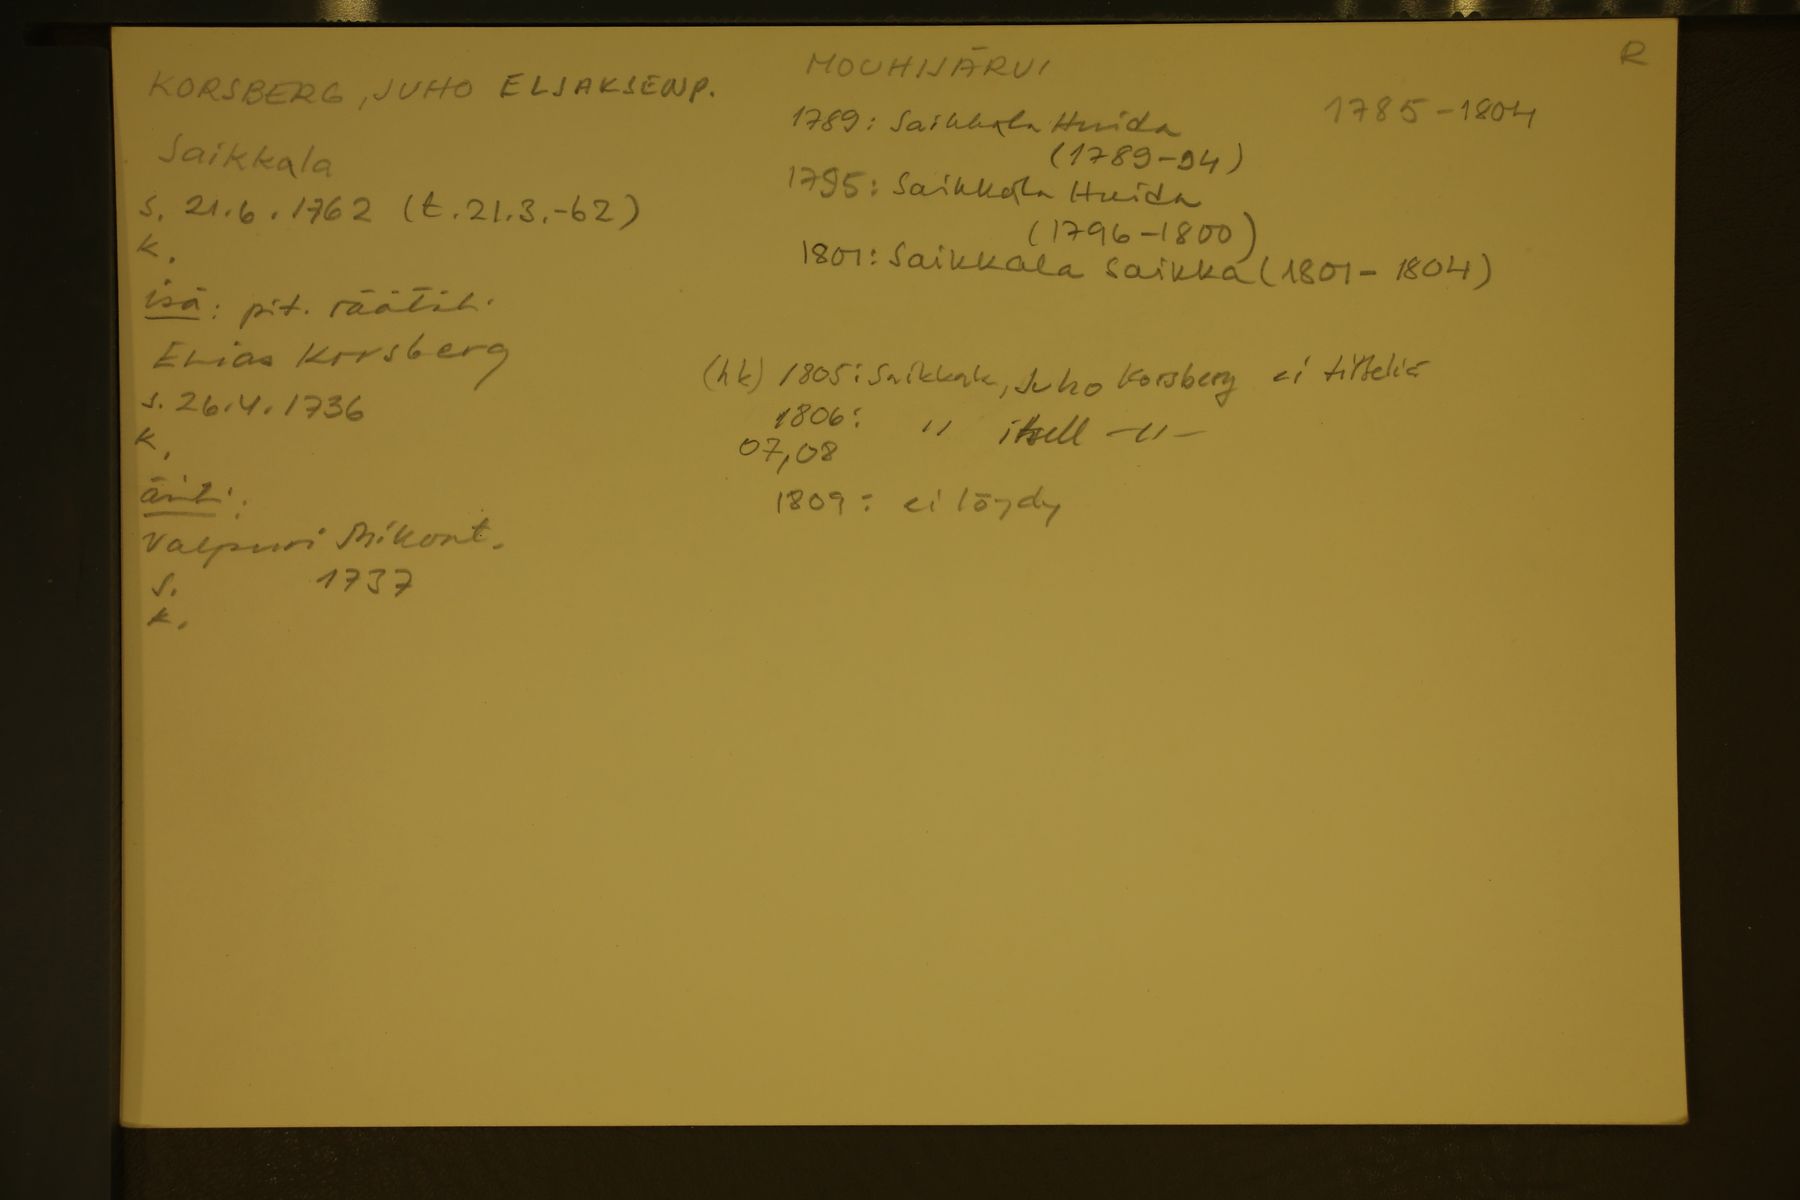 KORSBERG, JUHO ELJAKSENP.
Saikkala
s. 21.6.1762 (t.21.3.-62)
k.
isä: pit. räätäli
Elias Korsberg
s. 26.4.1736
k.
äiti:
Valpuri Mikont.
s. 1737
k.
MOUHIJÄRVI
R
1785-1804
1789: Saikkala Huida
(1789-94)
1795: Saikkala Huida
(1796-1800)
1801: Saikkala Saikka (1801-1804)
(hk) 1805: Saikkala, Juho Korsberg ei titteliä
1806: " itsell -"-
07,08
1809: ei löydy